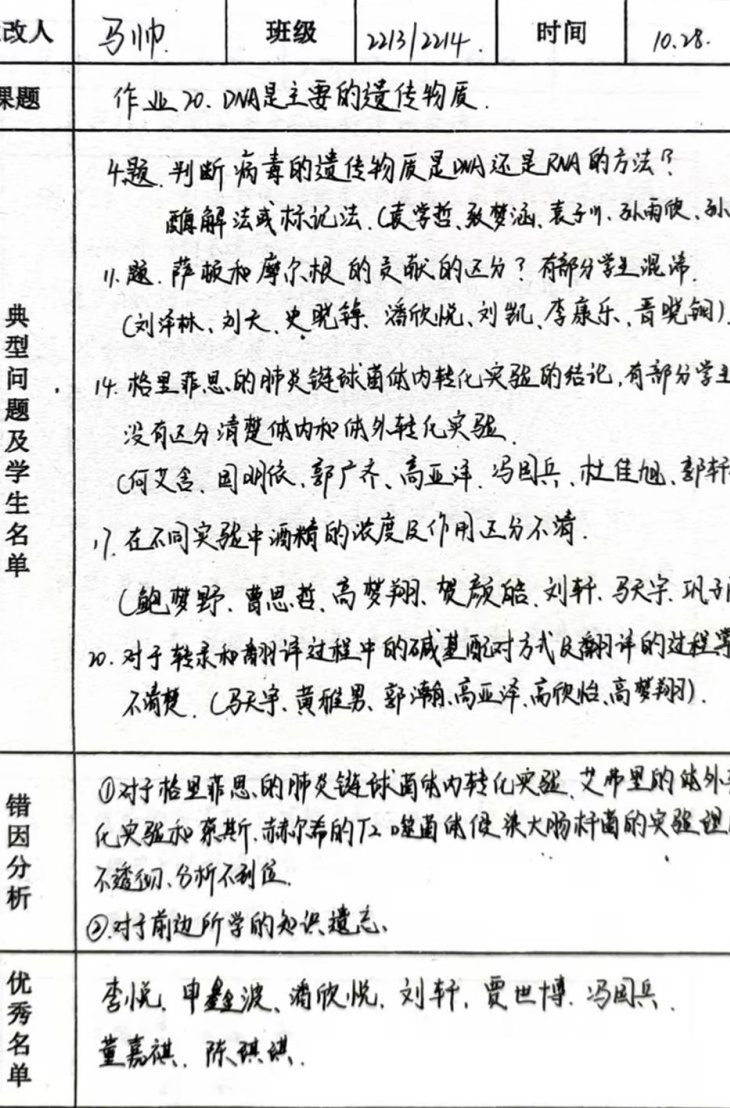 改人 马帅. 班级 2213/2214. 时间 10.28.
课题 作业20. DNA是主要的遗传物质.
典型问题及学生名单
4题. 判断病毒的遗传物质是DNA还是RNA的方法?
酶解法或标记法. (袁学哲、敖梦涵、袁子川、孙雨欣、孙
11.题. 萨顿和摩尔根的贡献的区分? 有部分学生混淆.
(刘泽林、刘天、史晓锋、潘欣悦、刘凯、李康乐、晋晓钢).
14. 格里菲思的肺炎链球菌体内转化实验的结论, 有部分学生
没有区分清楚体内和体外转化实验.
(何艾含、田明依、郭广齐、高亚泽、冯国兵、杜佳旭、郭轩
17. 在不同实验中酒精的浓度及作用区分不清.
(鲍梦野、曹思哲、高梦翔、贺颜皓、刘轩、马天宇、巩子
20. 对于转录和翻译过程中的碱基配对方式及翻译的过程掌
不清楚. (马天宇、黄雅男、郭瀚、高亚泽、高欣怡、高梦翔).
错因分析
①对于格里菲思的肺炎链球菌体内转化实验、艾弗里的体外转
化实验和蔡斯、赫尔希的T2噬菌体侵染大肠杆菌的实验理
不透彻、分析不到位.
②对于前边所学的知识遗忘、
优秀名单
李悦、申鑫波、潘欣悦、刘轩、贾世博、冯国兵、
董嘉祺、陈琪琪、